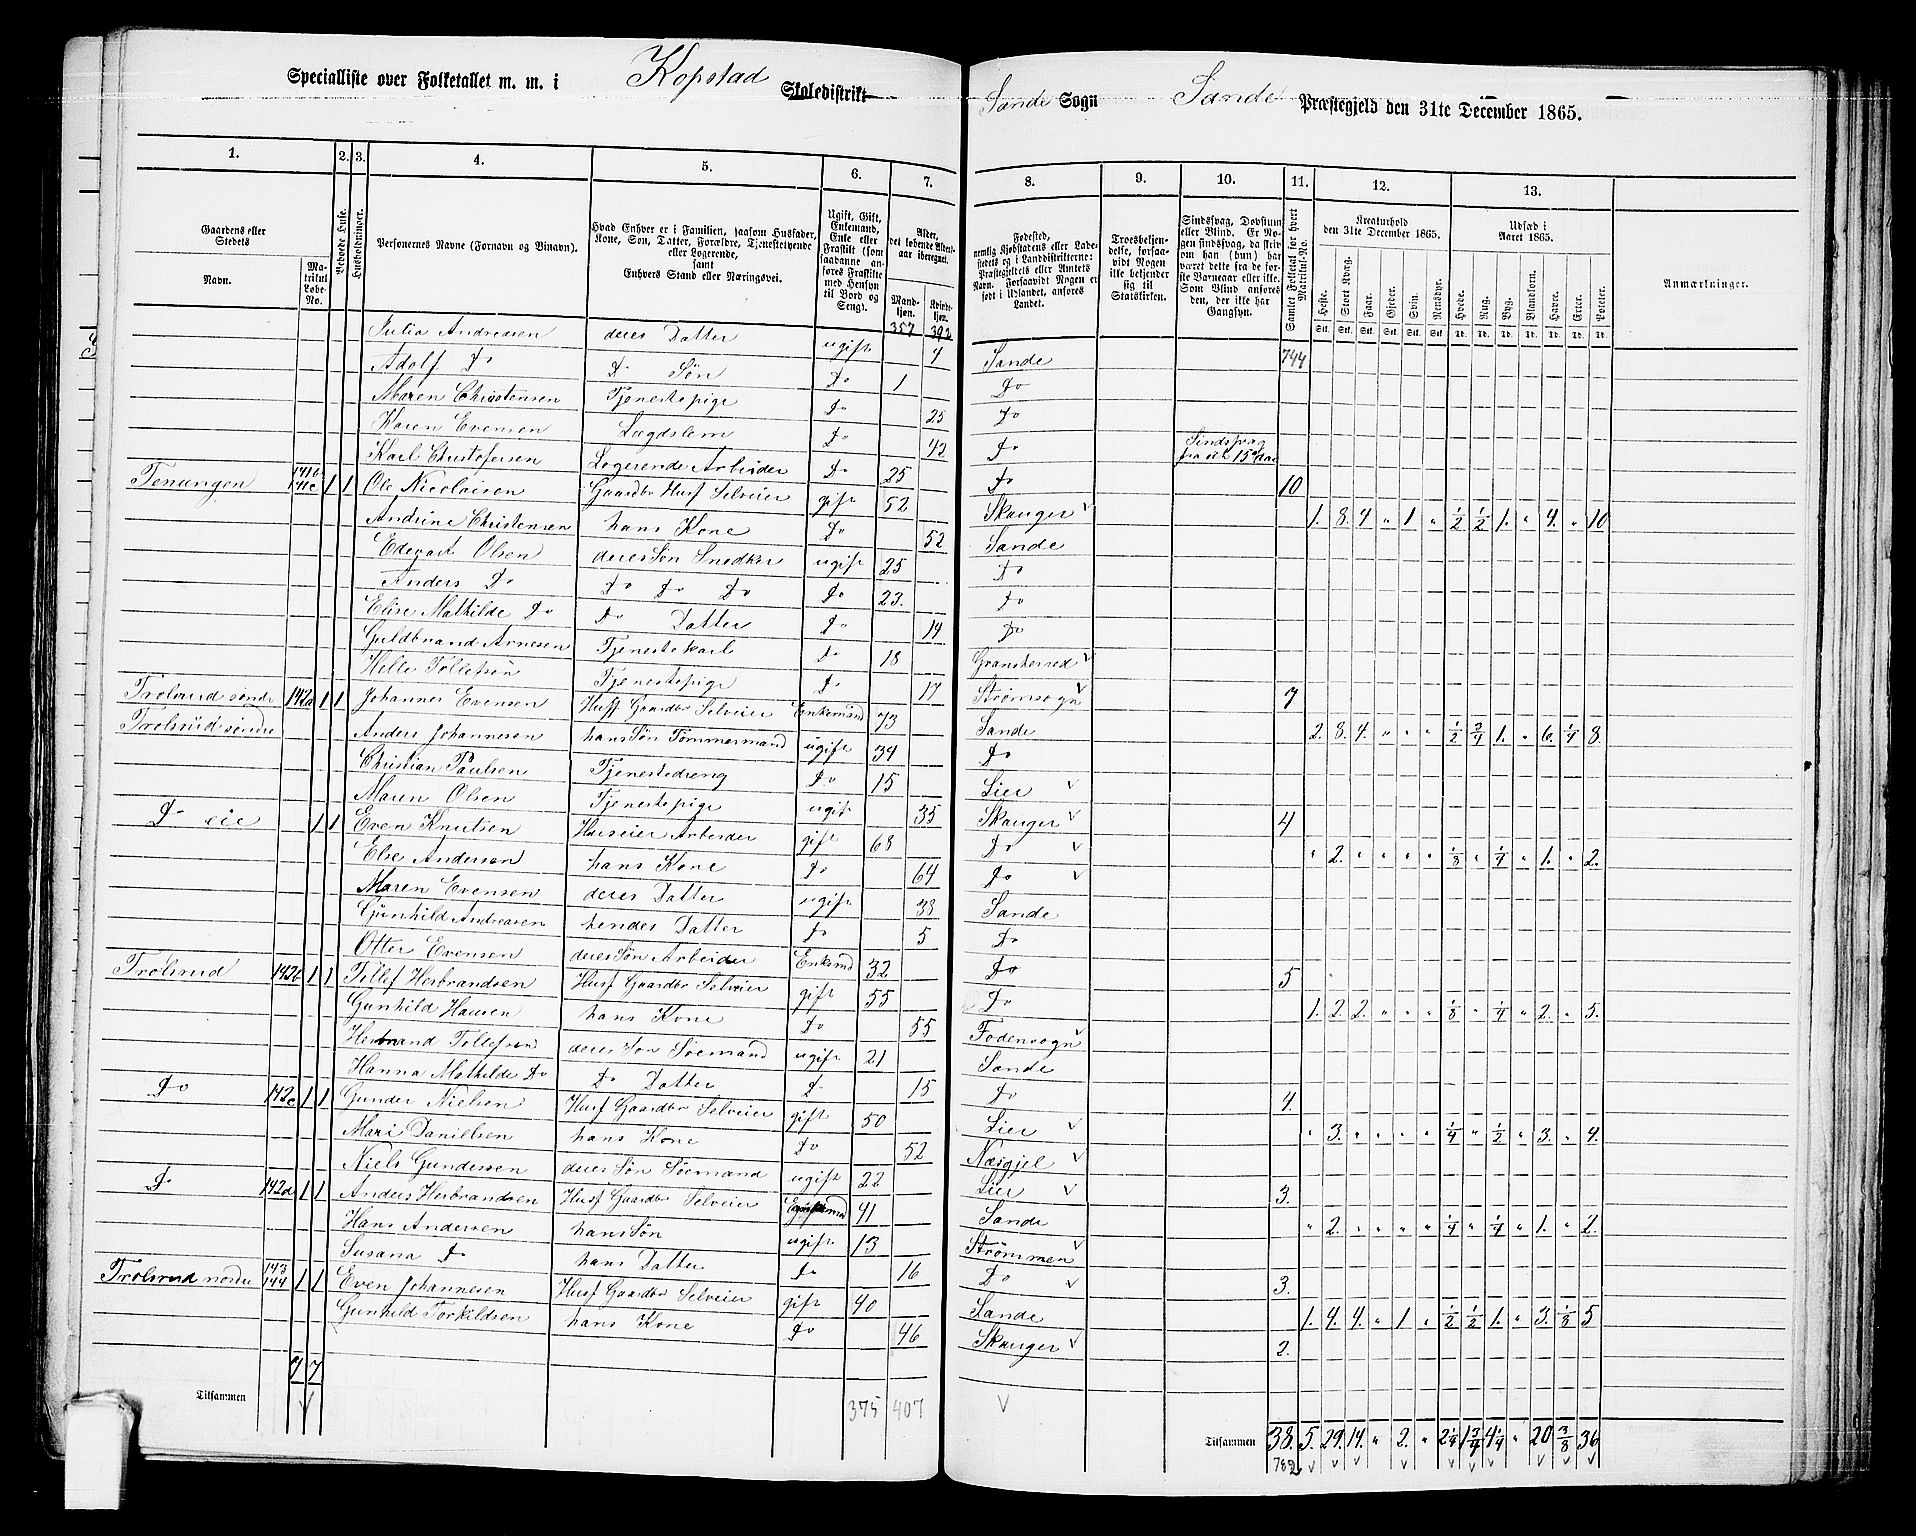 Specialliste over Folketallet m. m. i Kopstad Skoledistrikt Sande Sogn Sande Præstegjeld den 31te December 1865.
1. 2. 3. 4. 5. 6. 7. 8. 9. 10. 11. 12. 13.
Gaardens eller Stedets Navn. Matrikul Løbe-No. Beboede Huse. Husholdninger. Personernes Navne (Fornavn og Binavn). Hvad Enhver er i Familien, saasom Husfader, Kone, Søn, Datter, Forældre, Tjenestetyende eller Logerende, samt Enhvers Stand eller Næringsvei. Ugift, Gift, Enkemand, Enke eller Fraskilt (som saadanne anføres Fraskilte med Hensyn til Bord og Seng). Alder, det løbende Aldersaar iberegnet. Mandkjøn. Kvindekjøn.
Fødested, nemlig Kjøbstadens eller Ladestedets og i Landdistrikterne: Præstegjeldets eller Amtets Navn. Forsaavidt Nogen er født i Udlandet, anføres Landet. Troesbekjendelse, forsaavidt Nogen ikke bekjender sig til Statskirken. Sindssvag, Døvstum eller Blind. Er Nogen sindssvag, da skriv om han (hun) har været dette fra de første Barneaar eller ikke. Som Blind anføres den, der ikke har Gangsyn. Samlet Folketal for hvert Matrikul-No. Kreaturhold den 31te December 1865. Udsæd i Aaret 1865. Anmærkninger.
Heste. Stort Kvæg. Faar. Gjeder. Svin. Rensdyr. Hvede. Rug. Byg. Blandkorn. Havre. Erter. Poteter.
357 392
Julia Andreasen deres Datter ugift 4 Sande 744
Adolf Do D- Søn Do 1 Do
Maren Christensen Tjenestepige Do 25 Do
Karen Evensen Lægdslem Do 42 Do Sindsvag fra sit 15de Aar
Karl Christofersen Logerende Arbeider Do 25 Do 10
Tenungen 141b 141c 1 1 Ole Nicolaisen Gaardbr Husf Selveier gift 52 Skauger 1. 8. 4. " 1 " 1/2 1/2 1. " 4. " 10
Andrine Christensen hans Kone Do 52 Sande
Edevart Olsen deres Søn Snedker ugift 25 Do
Anders Do Do Do Do Do 23. Do
Elise Mathilde Do Do Datter Do 19 Do
Guldbrand Arnesen Tjenestekarl Do 18 Gransherred
Helle Tollefsen Tjenestepige Do 17 Strømsogn 7
Trolsrud søndr 142a 1 1 Johannes Evensen Husf Gaardbr Selveier Enkemand 73 Sande 2. 8. 4. " " " 1/2 3/4 1. " 6. 1/4 8.
Trolsrud søndre Anders Johannesen hans Søn Tømmermand ugift 34 Do
Christian Paulsen Tjenestedreng Do 15 Lier
Maren Olsen Tjenestepige ugift 35 Skauger 4
Do eie 1 1 Even Knutsen Huseier Arbeider gift 68 Do " 2. " " " " 1/8 " 1/4 " 1. " 2.
Else Andersen hans Kone Do 64 Do
Maren Evensen deres Datter ugift 33 Sande
Gunhild Andreasen hendes Datter Do 5 Do
Otter Evensen deres Søn Arbeider Enkemd 32 Do 5
Trolsrud 142b 1 1 Tollef Herbrandsen Husf Gaardbr Selveier gift 55 Do 1. 2. 2. " " " 1/8 " 1/4 " 2. " 5.
Gunhild Hansen hans Kone Do 55 Fodensogn
Herbrand Tollefsen deres Søn Sømand ugift 21 Sande
Hanna Mathilde Do Do Datter D- 15 Do 4.
Do 142c 1 1 Gunder Nielsen Husf Gaardbr Selveier gift 50 Lier " 3. " " " " 1/4 " 1/2 " 3. " 4.
Mari Danielsen hans Kone Do 52 Næsgjel
Niels Gundersen deres Søn Sømand ugift 22 Lier 3.
D- 142d 1 1 Anders Herbrandsen Husf Gaardbr Selveier Enkemd 41 Sande " 2. " " " " 1/4 " 1/4 " 1. " 2.
Hans Andersen hans Søn ugift 13 Strømmen
Susana Do hans Datter Do 16 Do 3.
Trolsrud nordre 143 144 1 1 Even Johannesen Husf Gaardbr Selveier gift 40 Sande 1. 4. 4. " 1 " 1/2 1/2 1. " 3. 1/8 5
Gunhild Torkildsen hans Kone Do 46 Skauger 2.
7 7
Tilsammen 375 407 Tilsammen 38. 5. 29. 14. " 2. " 2 1/4 1 3/4 4 1/4 " 20 3/8 36
782